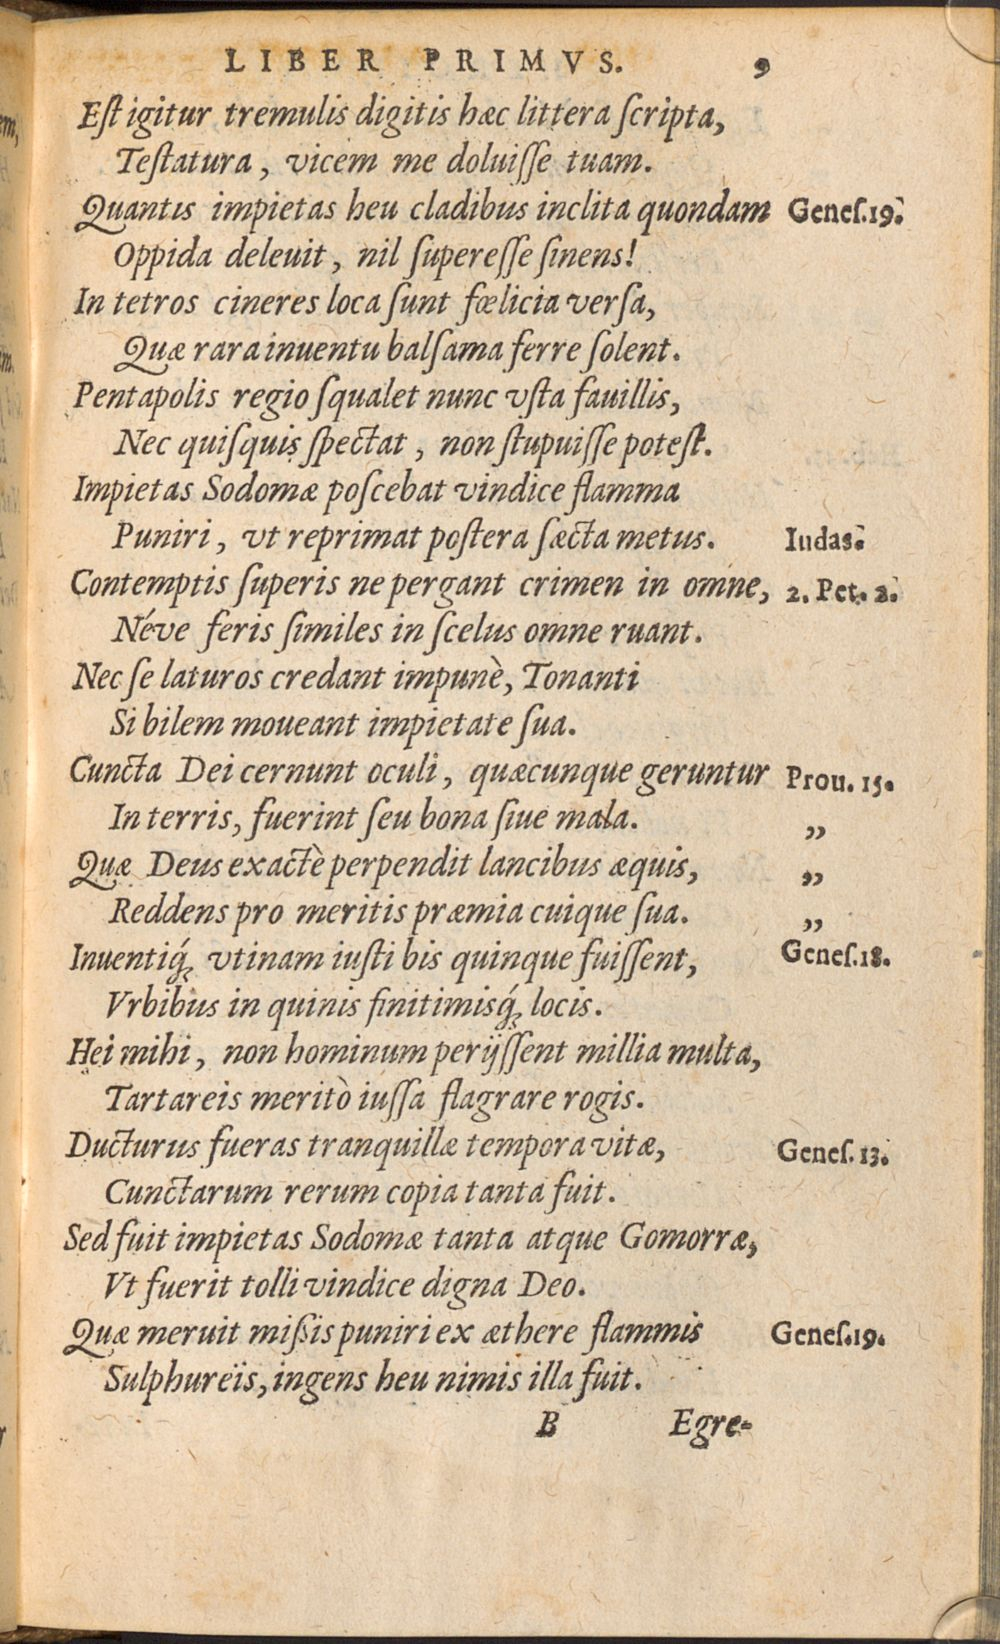 LIBER PRIMVS. 9
Eſt igitur tremulis digitis hæc littera ſcripta,
Teſtatura, vicem me doluiſſe tuam.
Quantis impietas heu cladibus inclita quondam Geneſ.19.
Oppida deleuit, nil ſupereſſe ſinens!
In tetros cineres loca ſunt fœlicia verſa,
Quæ rara inuentu balſama ferre ſolent.
Pentapolis regio ſqualet nunc vſta fauillis,
Nec quiſquis ſpectat, non ſtupuiſſe poteſt.
Impietas Sodomæ poſcebat vindice flamma
Puniri, vt reprimat poſtera ſæcta metus. Iudas.
Contemptis ſuperis ne pergant crimen in omne, 2. Pet. 2.
Néve feris ſimiles in ſcelus omne ruant.
Nec ſe laturos credant impunè, Tonanti
Si bilem moueant impietate ſua.
Cuncta Dei cernunt oculi, quæcunque geruntur Prou. 15.
In terris, fuerint ſeu bona ſiue mala. ”
Quæ Deus exactè perpendit lancibus æquis, ”
Reddens pro meritis præmia cuique ſua. ”
Inuentiq́; vtinam iuſti bis quinque fuiſſent, Geneſ.18.
Vrbibus in quinis finitimisq́; locis.
Hei mihi, non hominum perijſſent millia multa,
Tartareis meritò iuſſa flagrare rogis.
Ducturus fueras tranquillæ tempora vitæ, Geneſ. 13.
Cunctarum rerum copia tanta fuit.
Sed fuit impietas Sodomæ tanta atque Gomorræ,
Vt fuerit tolli vindice digna Deo.
Quæ meruit miſſis puniri ex æthere flammis Geneſ.19.
Sulphureïs, ingens heu nimis illa fuit.
B Egre-